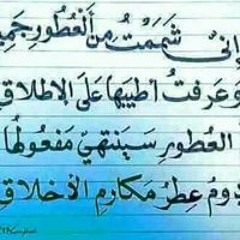 إنّي شَمَمْتُ مِنَ ٱلْعُطُورِ جَمِي
وَعَرفتُ أطيَبَها عَلَى الإطلاق
العُطورِ سَيَنتَهيّ مَفعُولُها
دومُ عِطرُ مَكارِمِ الأخلاق